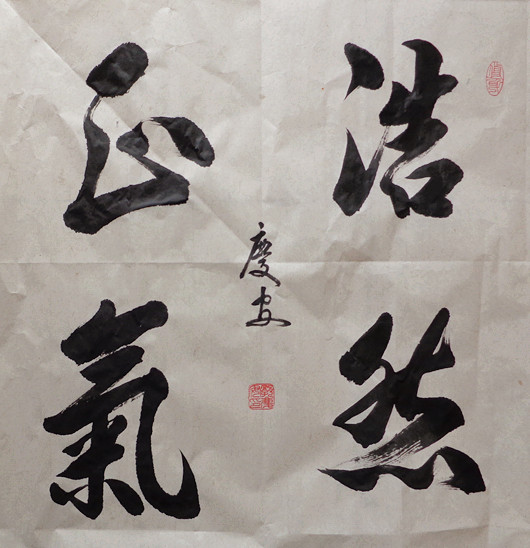 浩然
正氣
慶安